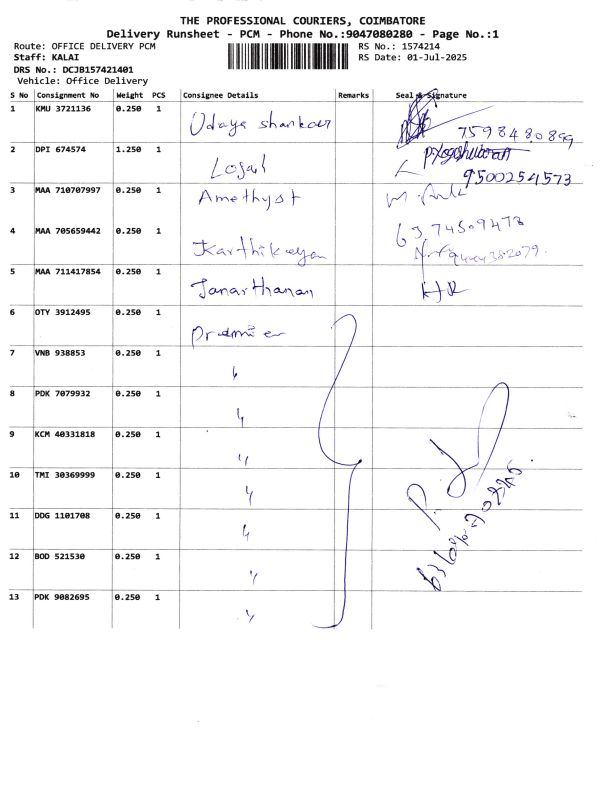 THE PROFESSIONAL COURIERS, COIMBATORE
Delivery Runsheet - PCM - Phone No.:9047080280 - Page No.:1
Route: OFFICE DELIVERY PCM RS No.: 1574214
Staff: KALAI RS Date: 01-Jul-2025
DRS No.: DCJB157421401
Vehicle: Office Delivery
S No Consignment No Weight PCS Consignee Details Remarks Seal & Signature
1 KMU 3721136 0.250 1 Udaya shankar 7598480899
2 DPI 674574 1.250 1 9500254573
3 MAA 710707997 0.250 1 Amethyst
4 MAA 705659442 0.250 1 Karthikeyan 6374509473
5 MAA 711417854 0.250 1 Janarthanan
6 OTY 3912495 0.250 1
7 VNB 938853 0.250 1 "
8 PDK 7079932 0.250 1 "
9 KCM 40331818 0.250 1 "
10 TMI 30369999 0.250 1 "
11 DDG 1101708 0.250 1 "
12 BOD 521530 0.250 1 "
13 PDK 9082695 0.250 1 "